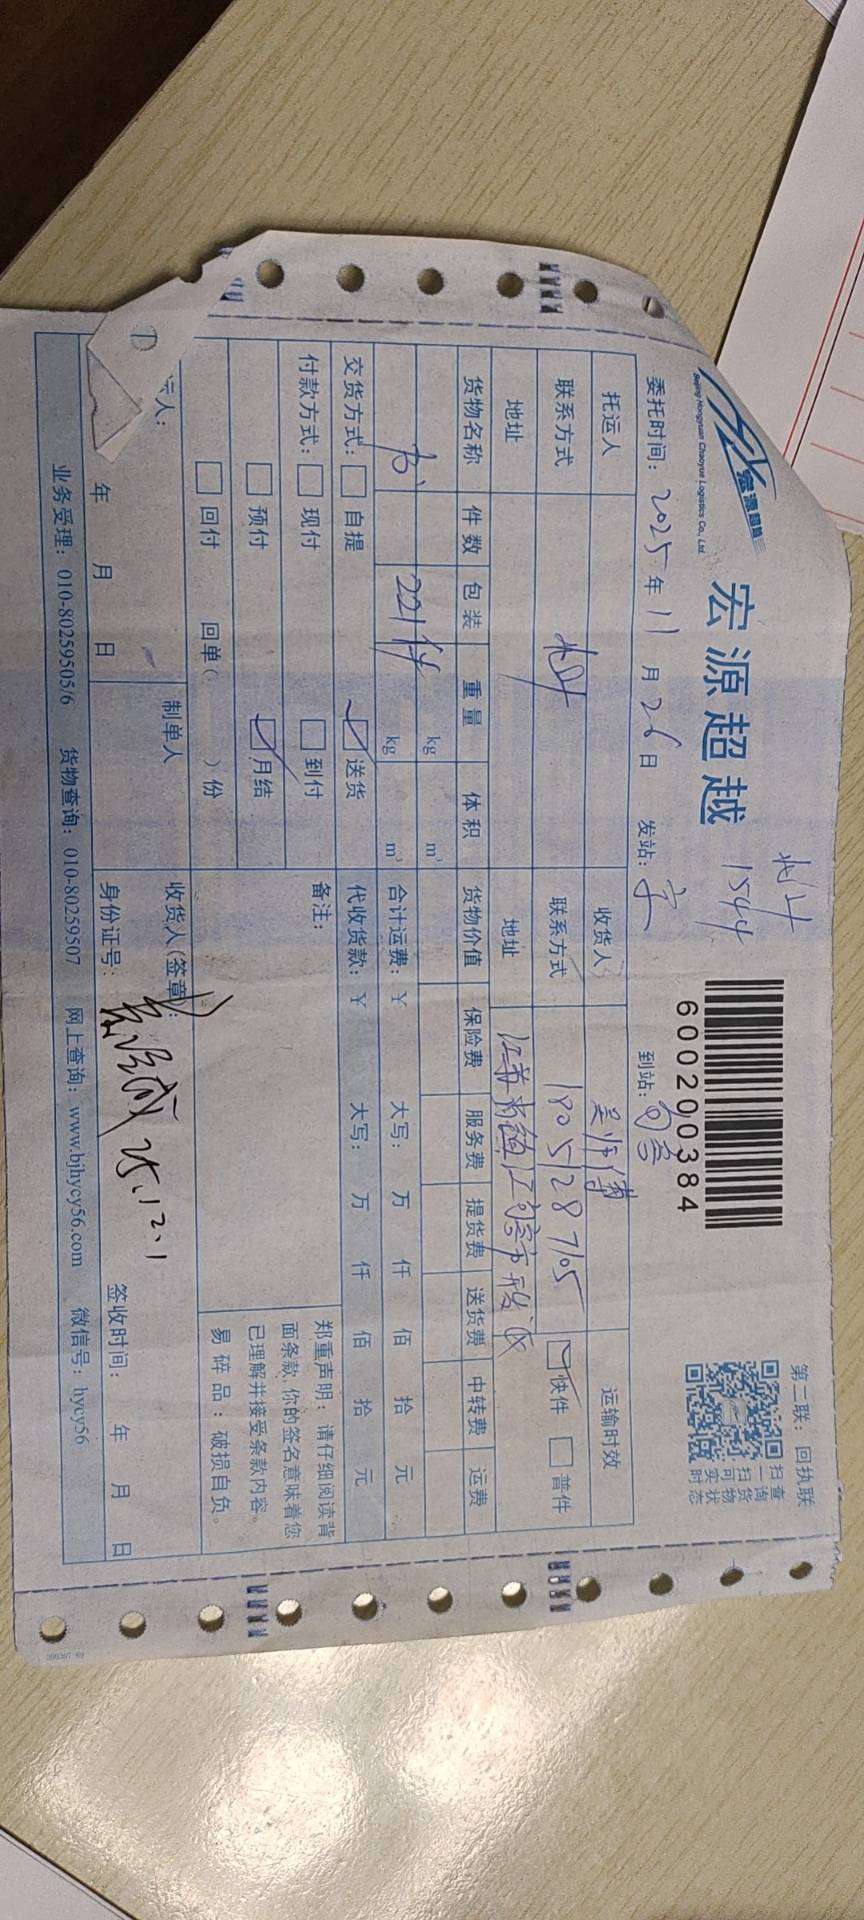 宏源超越
Beijing Hongyuan Chaoyue Logistics Co., Ltd.
宏源超越
1544
600200384
第二联：回执联
扫一扫可实时
查询货物状态
委托时间：2025年11月26日 发站：京 到站：句容
托运人 收货人 吴师傅 运输时效
联系方式 联系方式 18051287105 快件 普件
地址 地址 江苏省镇江句容市开发区
货物名称 件数 包装 重量 体积 货物价值 保险费 服务费 提货费 送货费 中转费 运费
kg m³
书 221件 kg m³ 合计运费：￥ 大写： 万 仟 佰 拾 元
交货方式： 自提 送货 代收货款：￥ 大写： 万 仟 佰 拾 元
付款方式： 现付 到付 备注：
预付 月结
回付 回单( )份
郑重声明：请仔细阅读背
面条款，你的签名意味着您
已理解并接受条款内容。
易碎品：破损自负。
人： 制单人 收货人(签章)：
年 月 日 身份证号： 25.12.1 签收时间： 年 月 日
业务受理：010-80259505/6 货物查询：010-80259507 网上查询：www.bjhycy56.com 微信号：hycy56